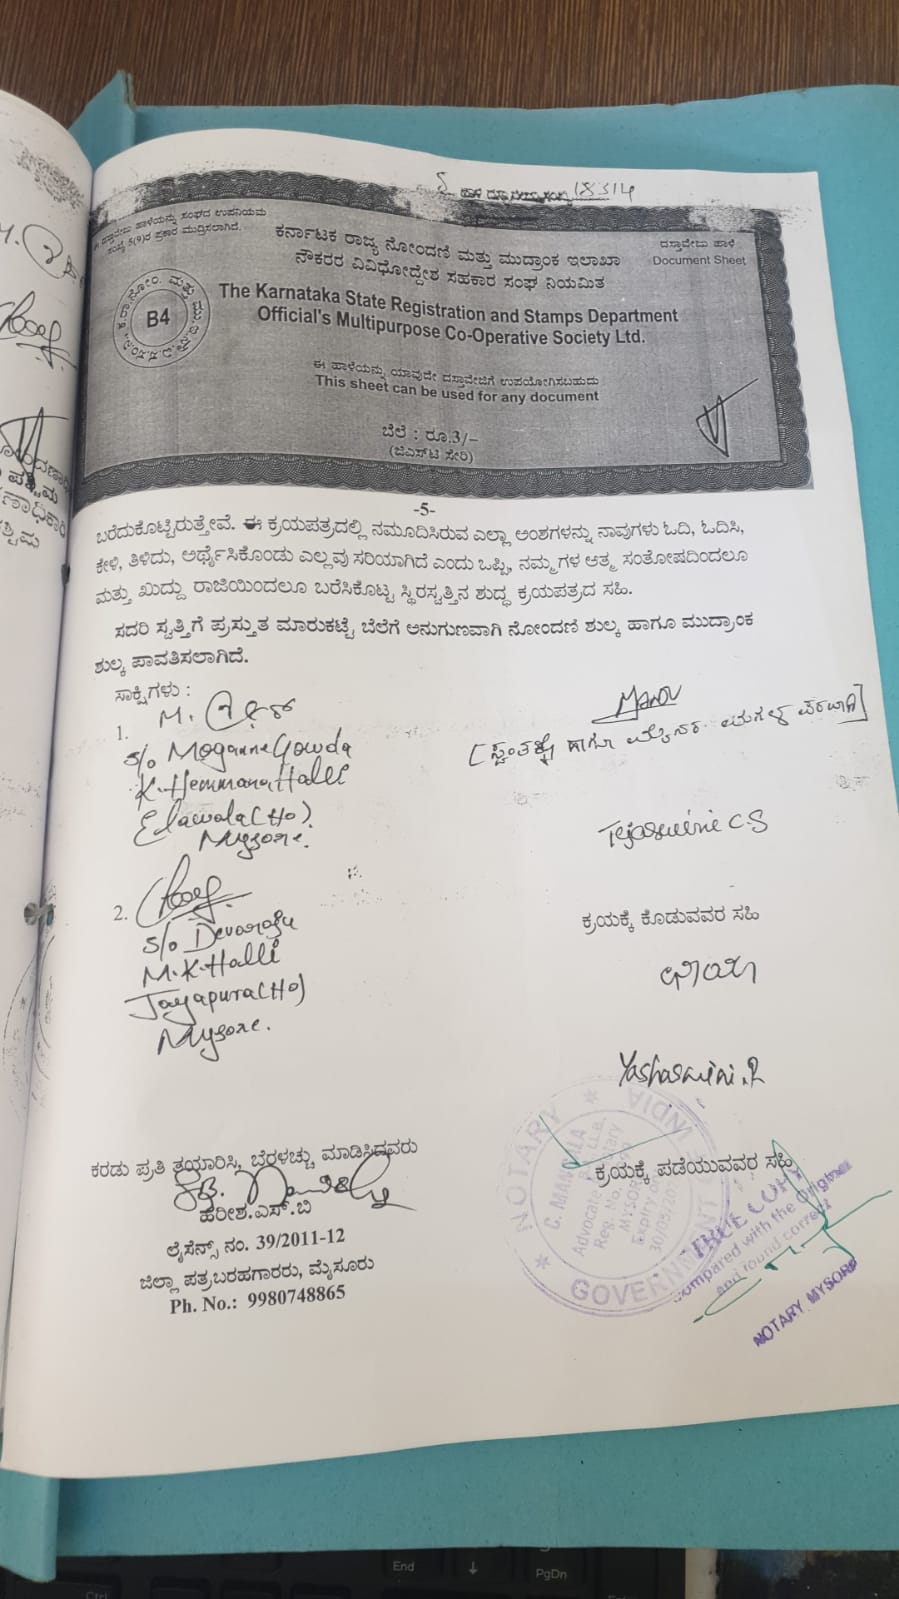 18314
ಈ ದಸ್ತಾವೇಜು ಹಾಳೆಯನ್ನು ಸಂಘದ ಉಪನಿಯಮ
ಸಂಖ್ಯೆ 5(9)ರ ಪ್ರಕಾರ ಮುದ್ರಿಸಲಾಗಿದೆ.
ಕರ್ನಾಟಕ ರಾಜ್ಯ ನೋಂದಣಿ ಮತ್ತು ಮುದ್ರಾಂಕ ಇಲಾಖಾ
ನೌಕರರ ವಿವಿಧೋದ್ದೇಶ ಸಹಕಾರ ಸಂಘ ನಿಯಮಿತ
ದಸ್ತಾವೇಜು ಹಾಳೆ
Document Sheet
B4
The Karnataka State Registration and Stamps Department
Official's Multipurpose Co-Operative Society Ltd.
ಈ ಹಾಳೆಯನ್ನು ಯಾವುದೇ ದಸ್ತಾವೇಜಿಗೆ ಉಪಯೋಗಿಸಬಹುದು
This sheet can be used for any document
ಬೆಲೆ : ರೂ.3/-
(ಜಿಎಸ್‌ಟಿ ಸೇರಿ)
-5-
ಬರೆದುಕೊಟ್ಟಿರುತ್ತೇವೆ. ಈ ಕ್ರಯಪತ್ರದಲ್ಲಿ ನಮೂದಿಸಿರುವ ಎಲ್ಲಾ ಅಂಶಗಳನ್ನು ನಾವುಗಳು ಓದಿ, ಓದಿಸಿ,
ಕೇಳಿ, ತಿಳಿದು, ಅರ್ಥೈಸಿಕೊಂಡು ಎಲ್ಲವು ಸರಿಯಾಗಿದೆ ಎಂದು ಒಪ್ಪಿ, ನಮ್ಮಗಳ ಆತ್ಮ ಸಂತೋಷದಿಂದಲೂ
ಮತ್ತು ಖುದ್ದು ರಾಜಿಯಿಂದಲೂ ಬರೆಸಿಕೊಟ್ಟ ಸ್ಥಿರಸ್ವತ್ತಿನ ಶುದ್ಧ ಕ್ರಯಪತ್ರದ ಸಹಿ.
ಸದರಿ ಸ್ವತ್ತಿಗೆ ಪ್ರಸ್ತುತ ಮಾರುಕಟ್ಟೆ ಬೆಲೆಗೆ ಅನುಗುಣವಾಗಿ ನೋಂದಣಿ ಶುಲ್ಕ ಹಾಗೂ ಮುದ್ರಾಂಕ
ಶುಲ್ಕ ಪಾವತಿಸಲಾಗಿದೆ.
ಸಾಕ್ಷಿಗಳು :
1.
S/o Moganne Gowda
K. Hemmana Halli
Elawala (Ho)
Mysore.
Tejaswini C.S
2.
S/o Devaraju
M.K. Halli
Jayapura (Ho)
Mysore.
ಕ್ರಯಕ್ಕೆ ಕೊಡುವವರ ಸಹಿ
Yashaswini.R
ಕ್ರಯಕ್ಕೆ ಪಡೆಯುವವರ ಸಹಿ
ಕರಡು ಪ್ರತಿ ತಯಾರಿಸಿ, ಬೆರಳಚ್ಚು ಮಾಡಿಸಿದವರು
ಹರೀಶ.ಎಸ್.ಬಿ
ಲೈಸೆನ್ಸ್ ನಂ. 39/2011-12
ಜಿಲ್ಲಾ ಪತ್ರಬರಹಗಾರರು, ಮೈಸೂರು
Ph. No.: 9980748865
NOTARY
GOVERNMENT OF INDIA
C. MANGALA
Advocate
Reg. No.
30/03/20
TRUE COPY
Compared with the Original
and found correct
NOTARY MYSORE
End
PgDn
Ctrl